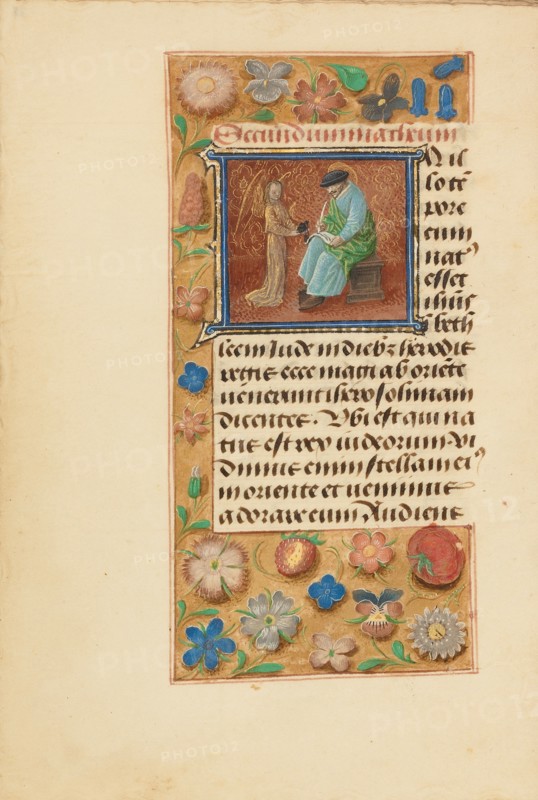 Secundum matheum
In il
lo tē
pore
cum
natꝰ
esset
ihūs
ī beth
leem Iude in diebꝫ herodis
regis ecce magi ab oriēte
uenerunt iherosolimam
dicentes. Vbi est qui na
tus est rex iudeorum. Vi
dimus enim stellam eiꝰ
in oriente et uenimus
adorare eum Audiens
PHOTO12